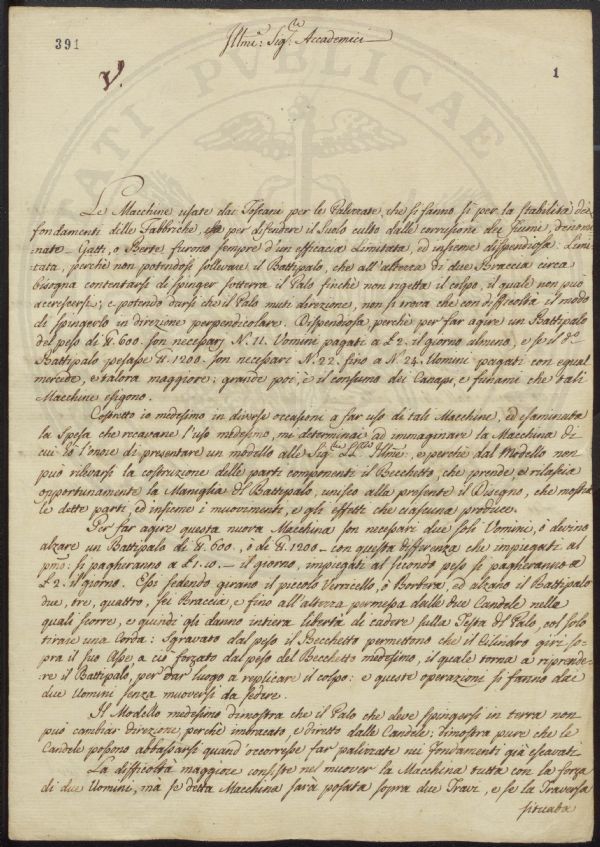 391
Illmi: Sigri: Accademici
1
V.
TATI PVBLICAE
Le Macchine usate dai Toscani per le Palizzate, che si fanno sì per la stabilità dei
fondamenti delle Fabbriche, che per difendere il Suolo culto dalle corrusioni dei Fiumi, denomi
nate Gatti, o Berte furono sempre d'un efficacia Limitata, ed insieme dispendiosa. Limi
tata, perchè non potendosi sollevare il Battipalo, che all'altezza di due Braccia circa
bisogna contentarsi di spinger sotterra il Palo finchè non rigetta il colpo, il quale non può
accrescersi; e potendo darsi che il Palo muti direzione, non si trova che con difficoltà il modo
di spingerlo in direzione perpendicolare. Dispendiosa perchè per far agire un Battipalo
del peso di ℔. 600. son necessarj N. 11. Uomini pagati a £2. il giorno almeno, e se il do.
Battipalo pesasse ℔. 1200. son necessari N. 22. fino a N. 24. Uomini pagati con egual
mercede, e talora maggiore; grande poi è il consumo dei Canapi, e funami che tali
Macchine esigono.
Costretto io medesimo in diverse occasioni a far uso di tali Macchine, ed esaminata
la Spesa che recavane l'uso medesimo, mi determinai ad immaginare la Macchina di
cui ò l'onore di presentare un modello alle Sig. LL. Illme: e perchè dal Modello non
può rilevarsi la costruzione delle parti componenti il Becchetto, che prende, e rilascia
opportunamente la Maniglia del Battipalo, unisco alla presente il Disegno, che mostra
le dette parti, ed insieme i muovimenti, e gli effetti che ciascuna produce.
Per far agire questa nuova Macchina son necessari due soli Uomini, ò devino
alzare un Battipalo di ℔. 600., ò de ℔. 1200. con questa differenza che impiegati al
pmo: si pagheranno a £1.10. il giorno, impiegati al secondo peso si pagheranno a
£2. il giorno. Essi sedendo girano il piccolo Verricello, ò Borbora, ed alzano il Battipalo
due, tre, quattro, sei Braccia, e fino all'altezza permessa dalle due Candele nella
quali scorre, e quindi gli danno intiera libertà di cadere sulla Testa del Palo, col solo
tirare una Corda: Sgravato dal peso il Becchetto permettono che il Cilindro giri so-
pra il suo Asse, a ciò forzato dal peso del Becchetto medesimo, il quale torna a riprende-
re il Battipalo, per dar luogo a replicare il colpo: e queste operazioni si fanno dai
due Uomini senza muoversi da sedere.
Il Modello medesimo dimostra che il Palo che deve spingersi in terra non
può cambiar Direzione, perchè imbracato, e diretto dalle Candele; dimostra pure che le
Candele possono abbassarsi quand'occorresse far palizzate nei Fondamenti già escavati.
La difficoltà maggiore consiste nel muover la Macchina tutta con la forza
di due Uomini, ma se detta Macchina sarà posata sopra due Travi, e se la Traversa
situata